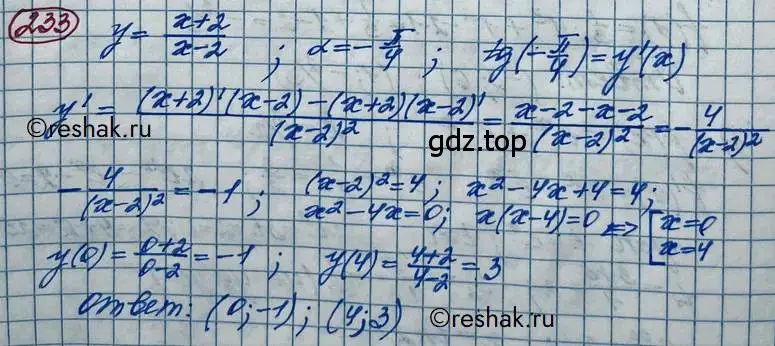 233 y = (x+2)/(x-2) ; α = -π/4 ; tg(-π/4) = y'(x)
y' = ((x+2)'(x-2) - (x+2)(x-2)')/(x-2)² = (x-2-x-2)/(x-2)² = -4/(x-2)²
©reshak.ru gdz.top
-4/(x-2)² = -1 ; (x-2)² = 4 ; x² - 4x + 4 = 4 ;
x² - 4x = 0 ; x(x-4) = 0 <=> [x=0
x=4
y(0) = (0+2)/(0-2) = -1 ; y(4) = (4+2)/(4-2) = 3
Ответ: (0;-1) ; (4;3)
©reshak.ru